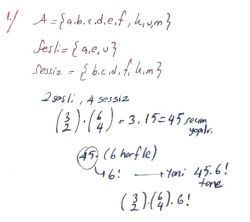 1/ A = {a,b,c,d,e,f,k,u,m}
Sesli = {a,e,u}
Sessiz = {b,c,d,f,k,m}
2 sesli, 4 sessiz
(3 2)·(6 4) = 3.15 = 45 seçim
yapılır.
45. (6 harfle)
→ 6! → Yani 45.6!
tane
(3 2)·(6 4)·6!